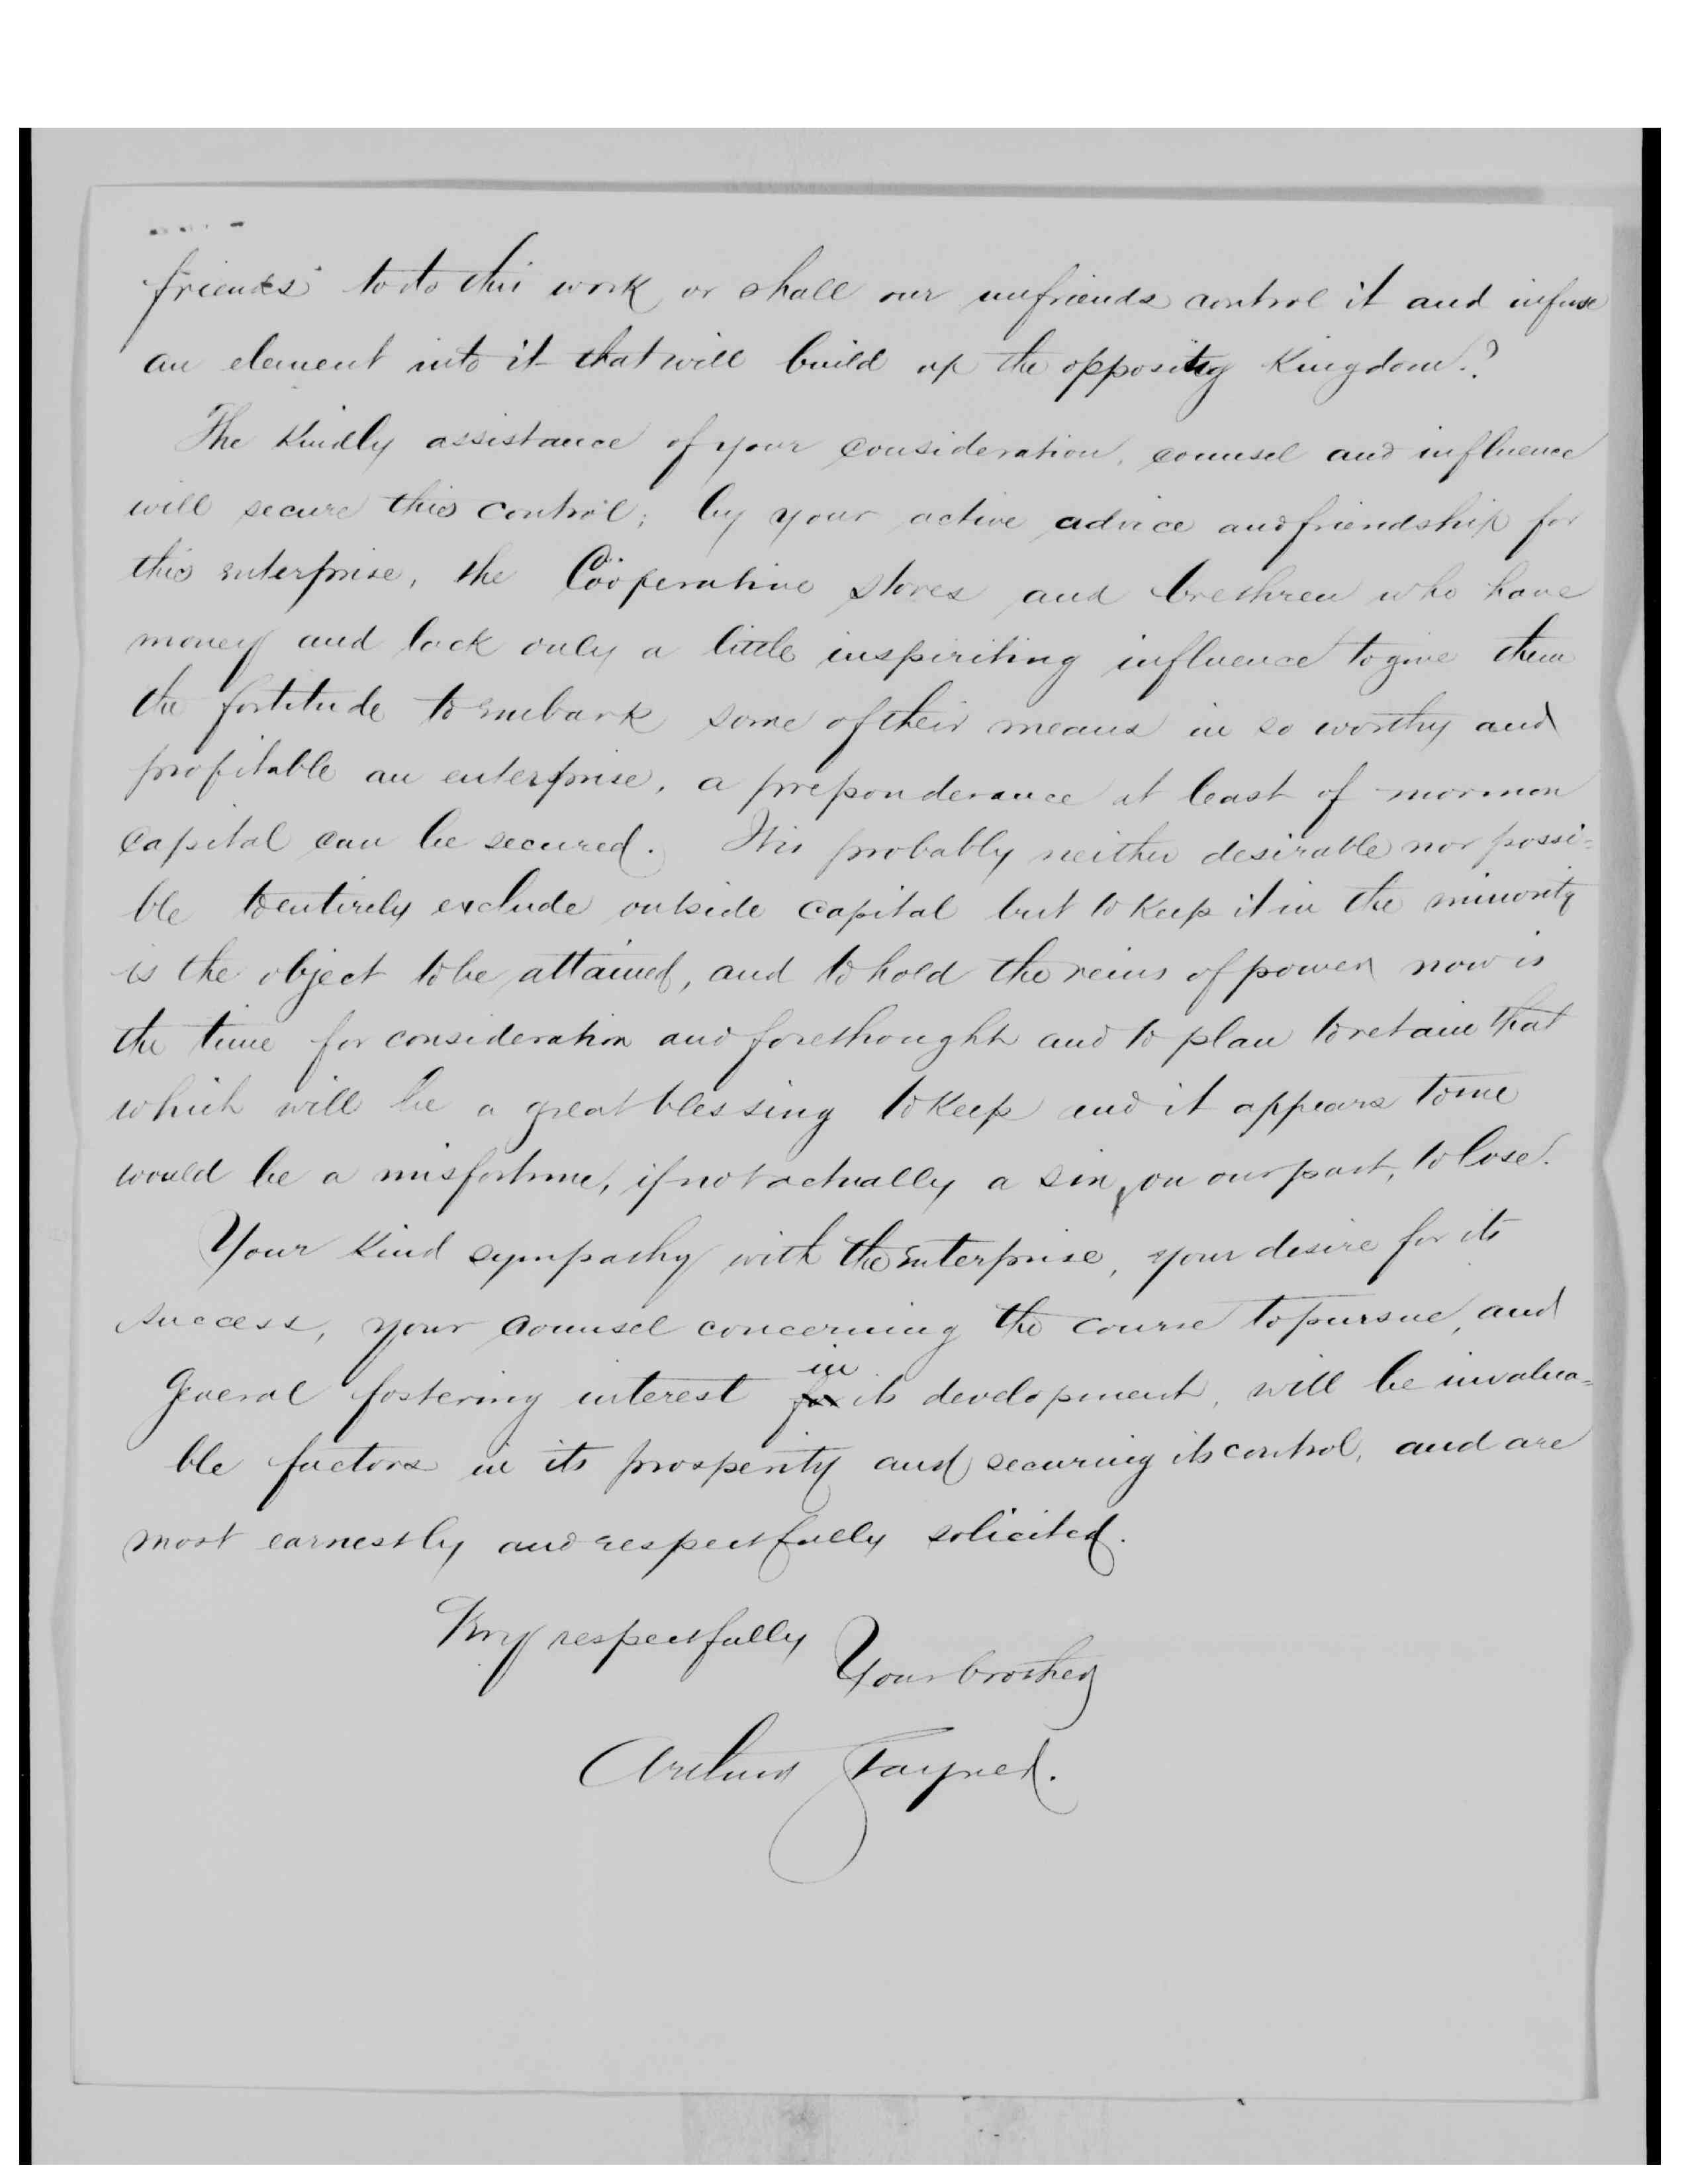 friends to do this work or shall our unfriends control it and infuse
an element into it that will build up the opposing Kingdom.?
The kindly assistance of your consideration, counsel and influence
will secure this control; by your active advice and friendship for
this enterprise, the Coöperative stores and brethren who have
money and lack only a little inspiriting influence to give them
the fortitude to embark some of their means in so worthy and
profitable an enterprise, a preponderance at least of mormon
capital can be secured. It is probably neither desirable nor possi-
ble to entirely exclude outside capital but to keep it in the minority
is the object to be attained, and to hold the reins of power now is
the time for consideration and forethought and to plan to retain that
which will be a great blessing to keep and it appears to me
would be a misfortune, if not actually a sin, on our part, to lose.
Your kind sympathy with the enterprise, your desire for its
success, your counsel concerning the course to pursue, and
general fostering interest in its development, will be invalua-
ble factors in its prosperity and securing its control, and are
most earnestly and respectfully solicited.
Very respectfully
Your brother
Arthur Stayner.